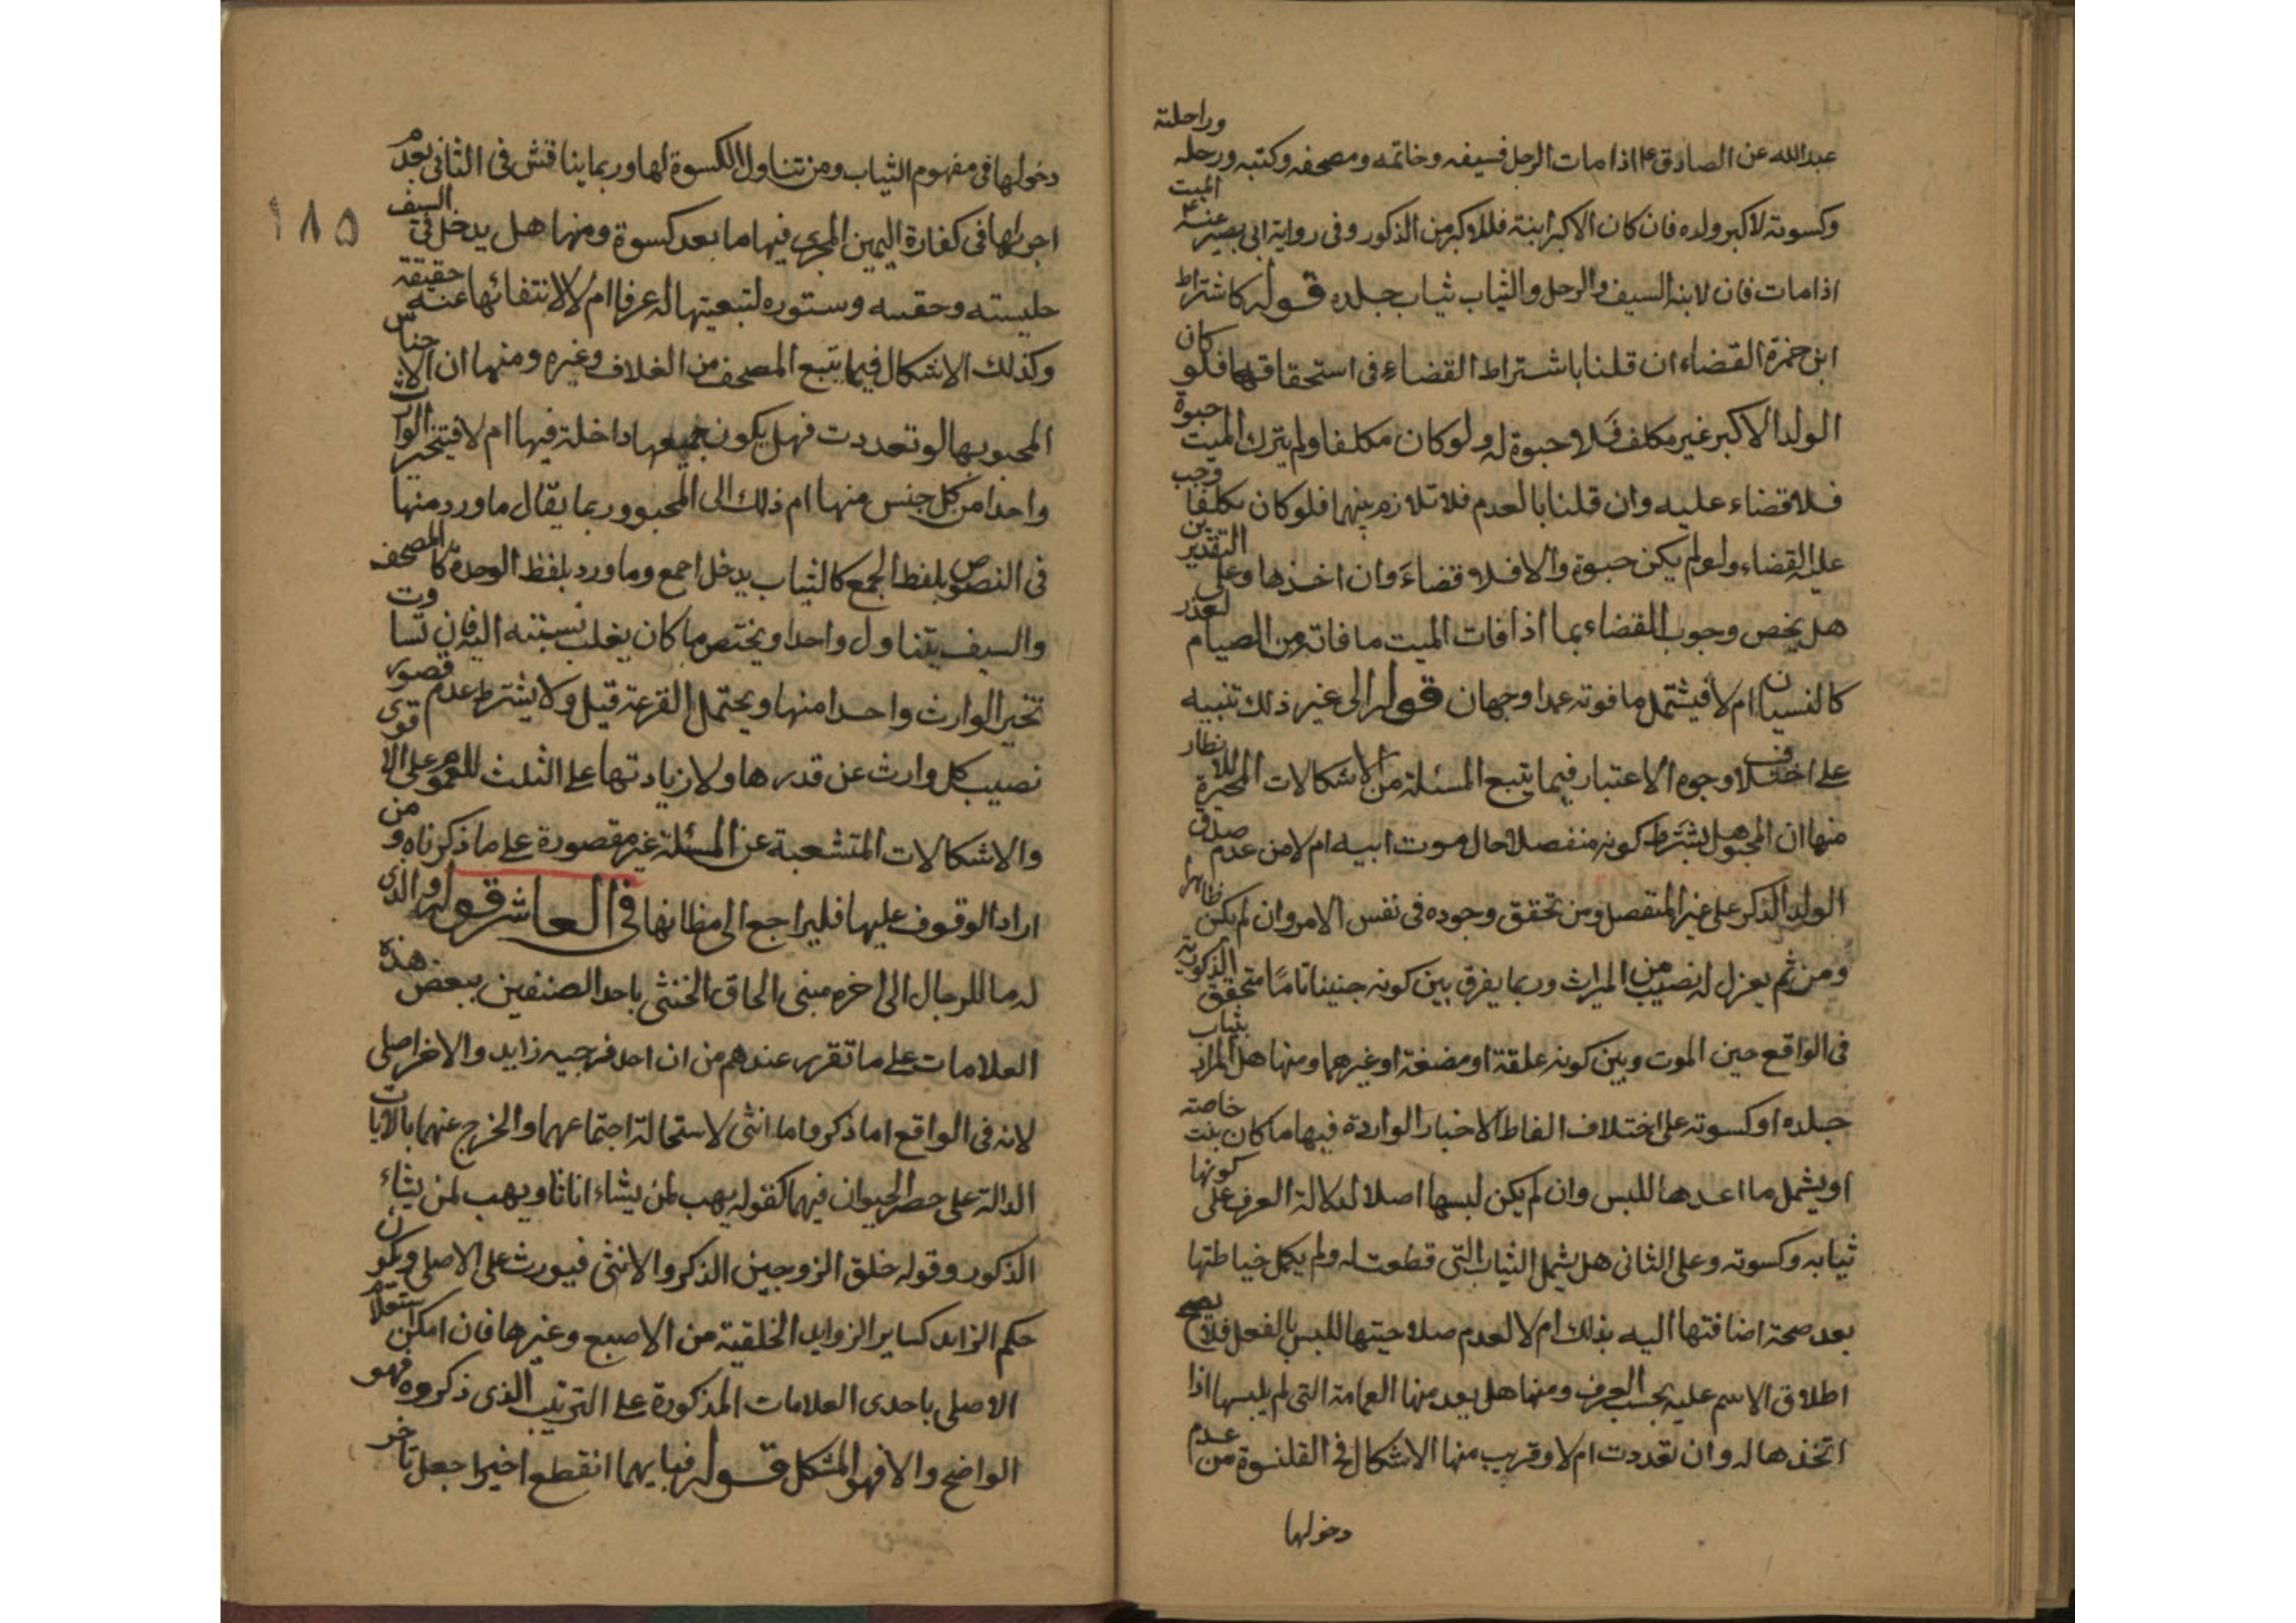 عبدالله عن الصادق ع اذا مات الرجل فسيفه وخاتمه ومصحفه وكتبه ورحله وراحلته
وكسوته لاكبر ولده فان كان الاكبر ابنة فللاكبر من الذكور وفى رواية ابى بصير عنه ع الميت
اذا مات فان لابنه السيف والرحل والثياب ثياب جلده قوله كاشتراط
ابن حمزة القضاء ان قلنا باشتراط القضاء فى استحقاقها فلو كان
الولد الاكبر غير مكلف فلا حبوة له ولو كان مكلفا ولم يترك الميت حبوة
فلا قضاء عليه وان قلنا بالعدم فلا تلازم بينهما فلو كان مكلفا وجب
عليه القضاء ولو لم يكن حبوة والا فلا قضاء وان اخذها وعلى التقديرين
هل يخص وجوب القضاء بما اذا فات الميت ما فاته من الصيام لعذر
كالنسيان ام لا فيشتمل ما فوته عمدا وجهان قوله الى غير ذلك تنبيه
على اختلاف وجوه الاعتبار فيما يتبع المسئلة من الاشكالات المحيرة للانظار
منها ان المحبو هل يشترط كونه منفصلا حال موت ابيه ام لا من عدم صدق
الولد الذكر على غير المنفصل ومن تحقق وجوده فى نفس الامر وان لم يكن ظاهرا
ومن ثم يعزل له نصيب من الميراث وربما يفرق بين كونه جنينا تاما متحقق الذكورية
فى الواقع حين الموت وبين كونه علقة او مضغة او غيرهما ومنها هل المراد بثياب
جلده او كسوته على اختلاف الفاظ الاخبار الواردة فيها ما كان خاصته
او يشمل ما اعدها للبس وان لم يكن لبسها اصلا لدلالة العرف على كونها
ثيابه وكسوته وعلى الثانى هل يشمل الثياب التى قطعت له ولم يكمل خياطتها
بعد صحة اضافتها اليه بذلك ام لا لعدم صلاحيتها للبس بالفعل فلا يصح
اطلاق الاسم عليه بحسب العرف ومنها هل يعد منها العمامة التى لم يلبسها اذا
اتخذها له وان تعددت ام لا وقريب منها الاشكال فى القلنسوة من عدم
دخولها
دخولها فى مفهوم الثياب ومن تناول الكسوة لها وربما يناقش فى الثانى بعدم
اجزائها فى كفارة اليمين المجزى فيها ما يعد كسوة ومنها هل يدخل فى السيف
حليته وستوره لتبعيتها له عرفا ام لا لانتفائها عنه حقيقة
وكذلك الاشكال فيما يتبع المصحف من الغلاف وغيره ومنها ان الاجناس
المحبو بها لو تعددت فهل يكون جميعها داخلة فيها ام لا فيتخير الوارث
واحدا من كل جنس منها ام ذلك الى المحبو وربما يقال ما ورد منها
فى النصوص بلفظ الجمع كالثياب يدخل اجمع وما ورد بلفظ الوحدة كالمصحف
والسيف يتناول واحدا ويختص ما كان يغلب نسبته اليه فان تساوت
تخير الوارث واحدا منها ويحتمل القرعة قيل ولا يشترط عدم قصور
نصيب كل وارث عن قدرها ولا زيادتها على الثلث للعموم على الاقوى
والاشكالات المتشعبة عن المسئلة غير مقصورة على ما ذكرناه ومن
اراد الوقوف عليها فليراجع الى مظانها فى العاشر قوله والذى
له ما للرجال الى اخره مبنى الحاق الخنثى باحد الصنفين ببعض هذه
العلامات على ما تقرر عندهم من ان احد فرجيه زايد والاخر اصلى
لانه فى الواقع اما ذكر واما انثى لاستحالة اجتماعهما والخرج عنهما بالايات
الدالة على حصر الحيوان فيهما كقوله يهب لمن يشاء اناثا ويهب لمن يشاء
الذكور وقوله خلق الزوجين الذكر والانثى فيورث على الاصلى ويكون
حكم الزايد كساير الزوايد الخلقية من الاصبع وغيرها فان امكن استعلام
الاصلى باحدى العلامات المذكورة على الترتيب الذى ذكروه فهو
الواضح والا فهو المشكل قوله فبايهما انقطع اخيرا جعل تاخر
١٨٥